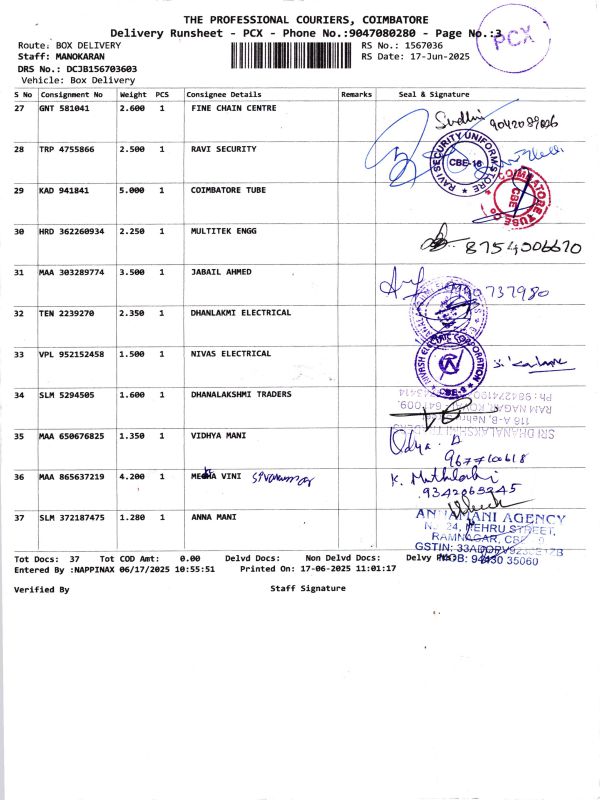 THE PROFESSIONAL COURIERS, COIMBATORE
Delivery Runsheet - PCX - Phone No.:9047080280 - Page No.:3
PCX
Route: BOX DELIVERY
RS No.: 1567036
Staff: MANOKARAN
RS Date: 17-Jun-2025
DRS No.: DCJB156703603
Vehicle: Box Delivery
S No Consignment No Weight PCS Consignee Details Remarks Seal & Signature
27 GNT 581041 2.600 1 FINE CHAIN CENTRE
28 TRP 4755866 2.500 1 RAVI SECURITY
RAVI SECURITY UNIFORM STORE CBE-16
29 KAD 941841 5.000 1 COIMBATORE TUBE
COIMBATORE TUBE CO CBE
30 HRD 362260934 2.250 1 MULTITEK ENGG
8754006670
31 MAA 303289774 3.500 1 JABAIL AHMED
32 TEN 2239270 2.350 1 DHANLAKMI ELECTRICAL
33 VPL 952152458 1.500 1 NIVAS ELECTRICAL
NIVASH ELECTRIC CORPORATION CBE-9
34 SLM 5294505 1.600 1 DHANALAKSHMI TRADERS
35 MAA 650676825 1.350 1 VIDHYA MANI
9677100618
36 MAA 865637219 4.200 1 MEGHA VINI Sivakumar
K. Muthulakshmi
9342065945
37 SLM 372187475 1.280 1 ANNA MANI
MANI AGENCY
24, NEHRU STREET,
RAMNAGAR, CBE
MOB: 94430 35060
Tot Docs: 37 Tot COD Amt: 0.00 Delvd Docs: Non Delvd Docs: Delvy
Entered By :NAPPINAX 06/17/2025 10:55:51 Printed On: 17-06-2025 11:01:17
Verified By
Staff Signature